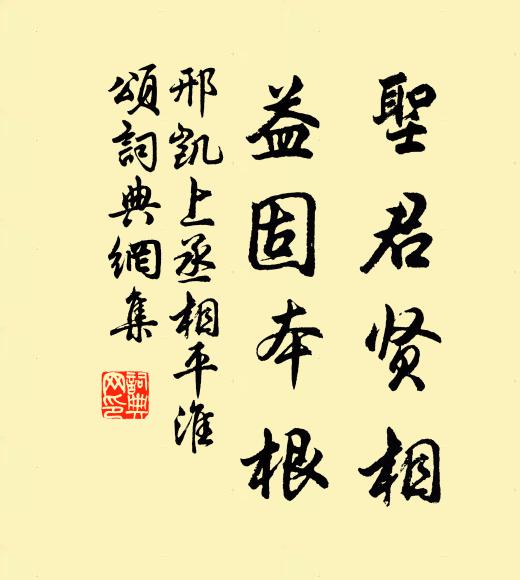 聖君贤相
益固本根
邢凱上丞相平淮
頌詞典網集
詞典
网印